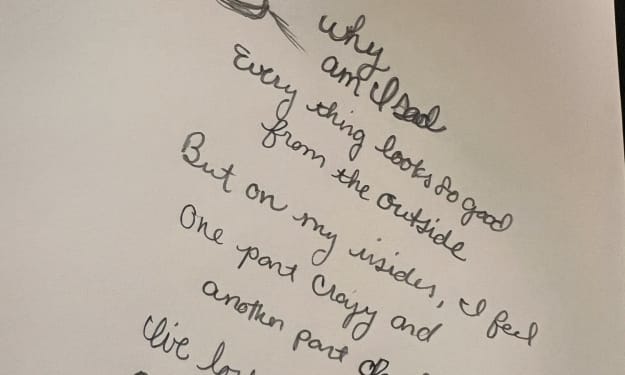 why
am I sad
Every thing looks so good
from the outside
But on my insides, I feel
One part Crazy and
another part
I've